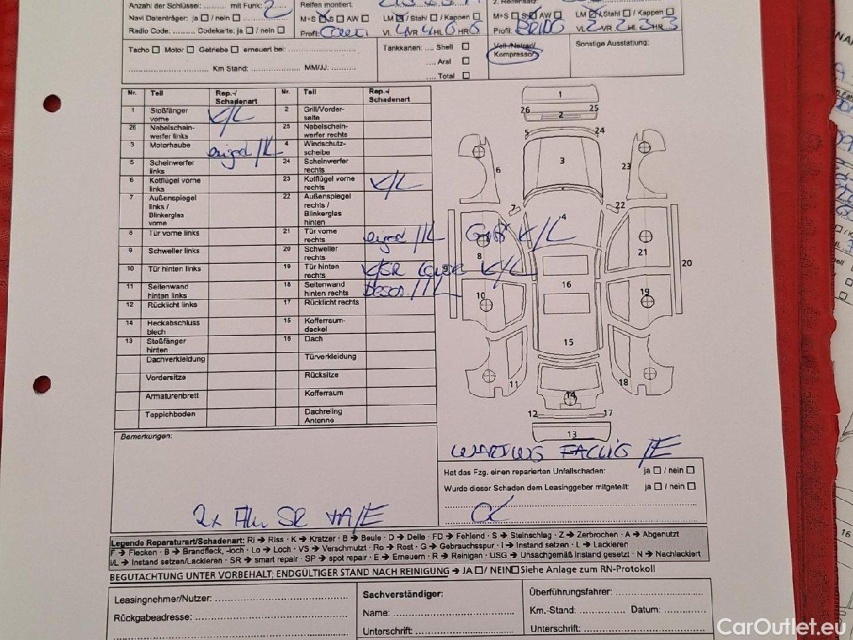 Anzahl der Schlüssel: ........ mit Funk: 2
Reifen montiert:
Navi Datenträger: ja □ / nein □
M+S □ SR □ AW □ LM ☒ / Stahl □ / Kappen □
M+S □ SR □ AW □ LM ☒ / Stahl □ / Kappen □
Radio Code: Codekarte: ja □ / nein □
Profil: VL 4 VR 4 HL 6 HR 6
Profil: VL 2 VR 2 HL 3 HR 3
Tacho □ Motor □ Getriebe □ erneuert bei:
Km Stand: MM/JJ:
Tankkarten: Shell □
Aral □
Total □
Voll-/Notrad/
Kompressor
Sonstige Ausstattung:
Nr. Teil Rep.-/ Schadenart Nr. Teil Rep.-/ Schadenart
1 Stoßfänger vorne K/L 2 Grill/Vorder-seite
26 Nebelschein-werfer links 25 Nebelschein-werfer rechts
3 Motorhaube I/L 4 Windschutz-scheibe
5 Scheinwerfer links 24 Scheinwerfer rechts
6 Kotflügel vorne links 23 Kotflügel vorne rechts K/L
7 Außenspiegel links / Blinkerglas vorne 22 Außenspiegel rechts / Blinkerglas hinten
8 Tür vorne links 21 Tür vorne rechts I/L K/L
9 Schweller links 20 Schweller rechts
10 Tür hinten links 19 Tür hinten rechts K/SR K/L
11 Seitenwand hinten links 18 Seitenwand hinten rechts I/L
12 Rücklicht links 17 Rücklicht rechts
14 Heckabschluss blech 15 Kofferraum-deckel
13 Stoßfänger hinten 16 Dach
Dachverkleidung Türverkleidung
Vordersitze Rücksitze
Armaturenbrett Kofferraum
Teppichboden Dachreling Antenne
1
26 25
2
5 24
3
6 23
7 22
4
8 21
20
10 16 19
15
11 18
14
12 17
13
Bemerkungen:
WARTUNG FÄLLIG /E
Hat das Fzg. einen reparierten Unfallschaden: ja □ / nein □
Wurde dieser Schaden dem Leasinggeber mitgeteilt: ja □ / nein □
2x Alu SR VA/E
Legende Reparaturart/Schadenart: Ri → Riss · K → Kratzer · B → Beule · D → Delle · FD → Fehlend · S → Steinschlag · Z → Zerbrochen · A → Abgenutzt
F → Flecken · B → Brandfleck, -loch · Lo → Loch · VS → Verschmutzt · Ro → Rost · G → Gebrauchsspur · I → Instand setzen · L → Lackieren
I/L → Instand setzen/Lackieren · SR → smart repair · SP → spot repair · E → Erneuern · R → Reinigen · USG → Unsachgemäß instand gesetzt · N → Nachlackiert
BEGUTACHTUNG UNTER VORBEHALT; ENDGÜLTIGER STAND NACH REINIGUNG → JA □ / NEIN □ Siehe Anlage zum RN-Protokoll
Leasingnehmer/Nutzer:
Rückgabeadresse:
Sachverständiger:
Name:
Unterschrift:
Überführungsfahrer:
Km.-Stand: Datum:
Unterschrift:
CarOutlet.eu